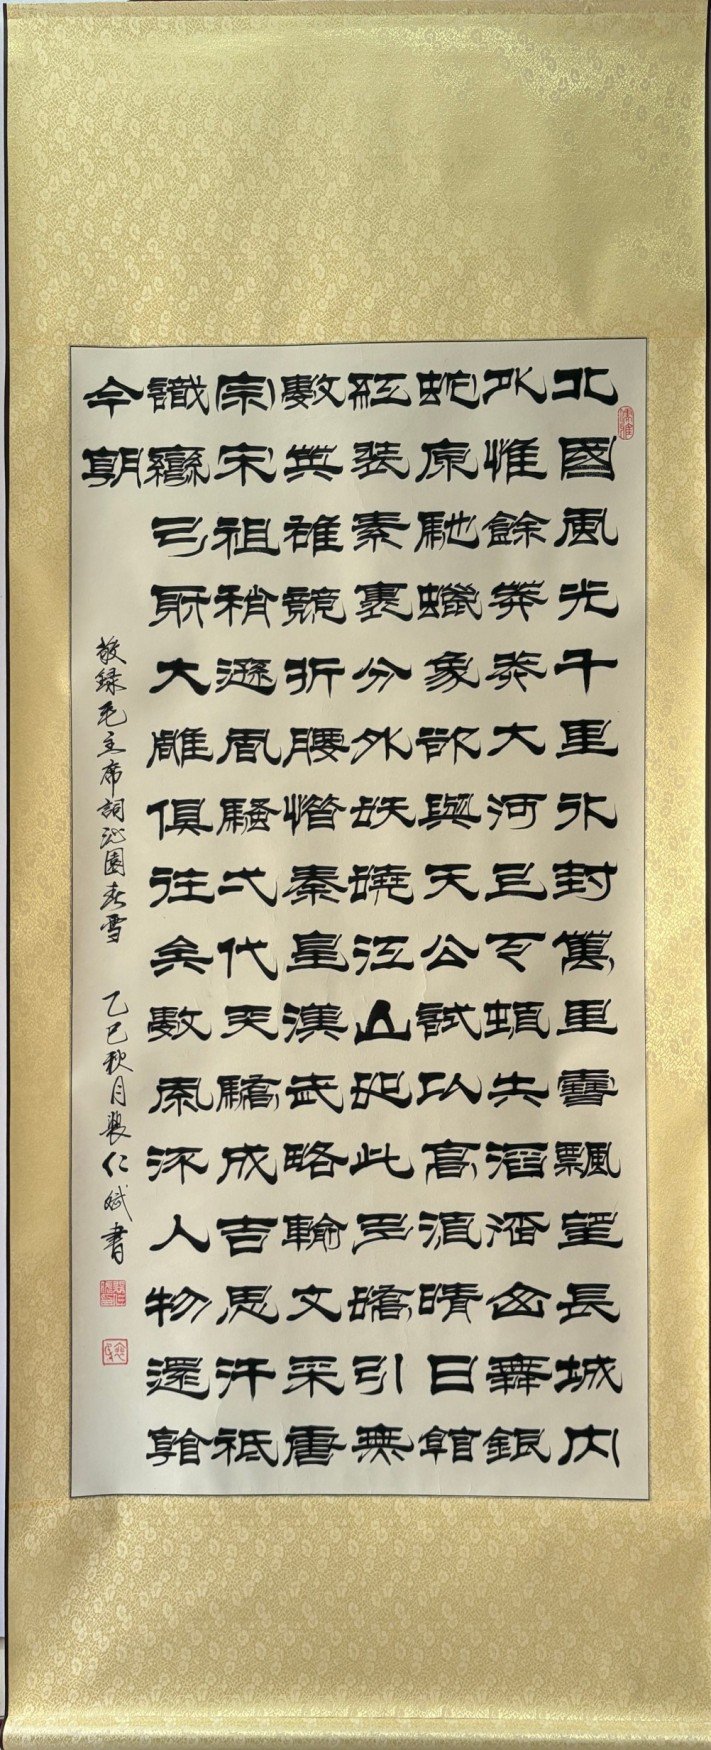 儒雅
北國風光千里冰封萬里雪飄望長城内
外惟餘莽莽大河上下頓失滔滔山舞銀
蛇原馳蠟象欲與天公試比高須晴日看
紅裝素裹分外妖嬈江山如此多嬌引無
數英雄競折腰惜秦皇漢武略輸文采唐
宗宋祖稍遜風騷弌代天驕成吉思汗祇
識彎弓射大雕俱往矣數風流人物還看
今朝
敬録毛主席詞沁園春雪 乙巳秋月裴仁斌書